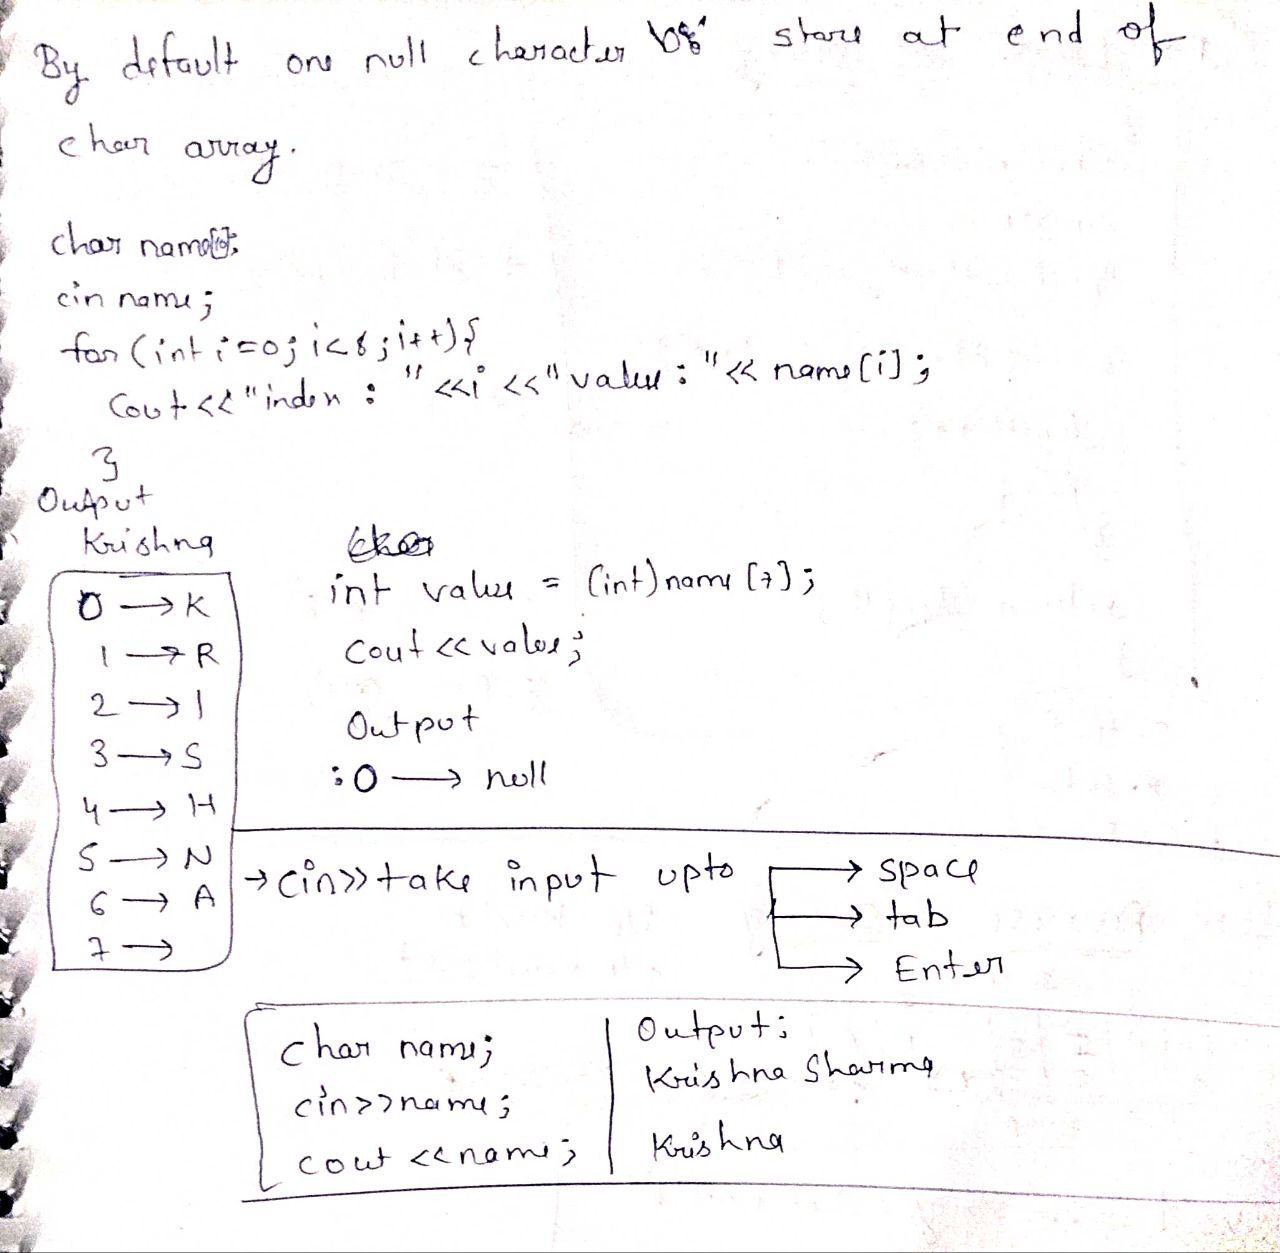 By default one null character store at end of
char array.
char name[10];
cin name;
for (int i=0; i<8; i++){
Cout<<"index : " <<i <<" value : " << name[i];
}
Output
Krishna
0 → K
1 → R
2 → I
3 → S
4 → H
5 → N
6 → A
7 →
int value = (int)name[7];
cout << value;
Output
:0 → null
→ cin>> take input upto → space
→ tab
→ Enter
char name;
cin>>name;
cout <<name;
Output:
Krishna Sharma
Krishna